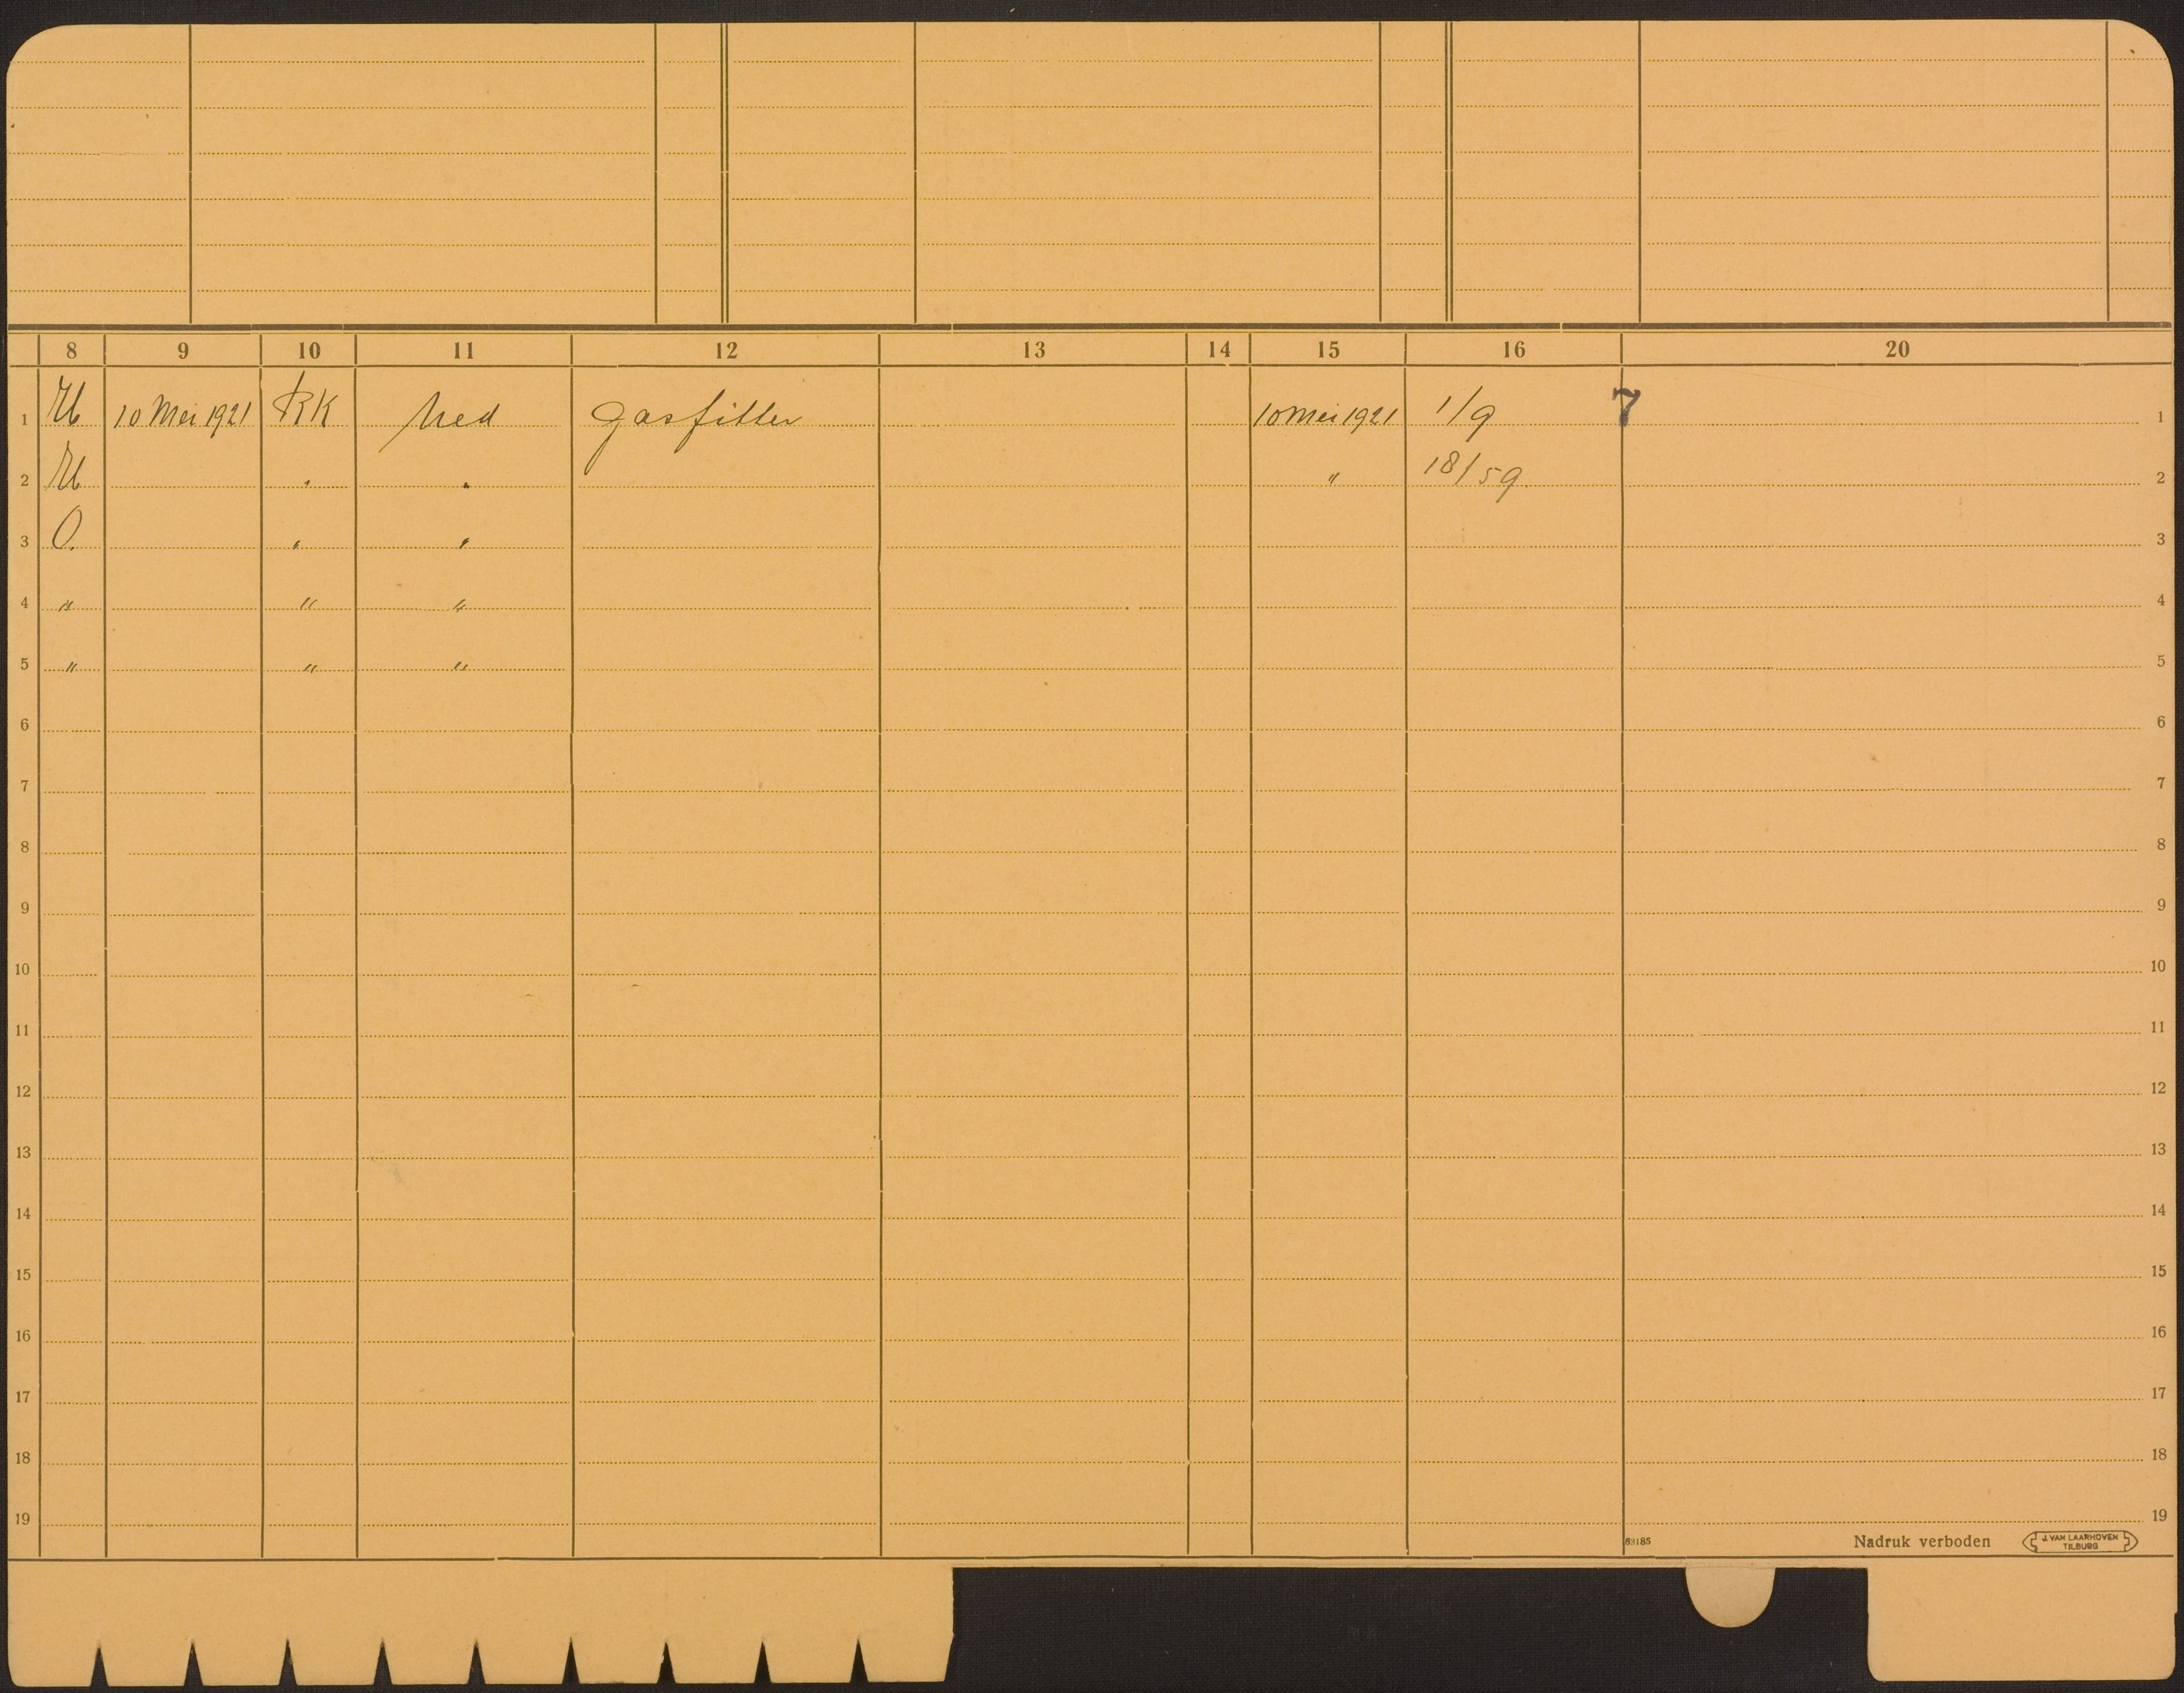 8 9 10 11 12 13 14 15 16 20
1 H 10 Mei 1921 RK Ned gasfitter 10 Mei 1921 1/9 7 1
2 H " " " 18/59 2
3 O. " " 3
4 " " " 4
5 " " " 5
6 6
7 7
8 8
9 9
10 10
11 11
12 12
13 13
14 14
15 15
16 16
17 17
18 18
19 19
63185 Nadruk verboden J. VAN LAARHOVEN
TILBURG